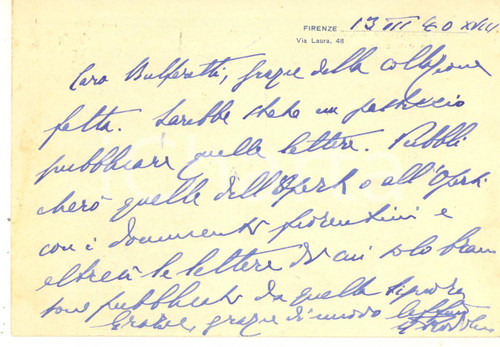 FIRENZE 13 III 40 XVIII
Via Laura, 48
Caro Bulferetti, grazie della collazione
fatta. Sarebbe stato un pasticcio
pubblicare quelle lettere. Pubbli
cherò quelle dell'Opera o all'Opera
con i documenti fiorentini e
le lettere di cui solo brani
sono pubblicati da quella signora
Grazie, grazie di nuovo